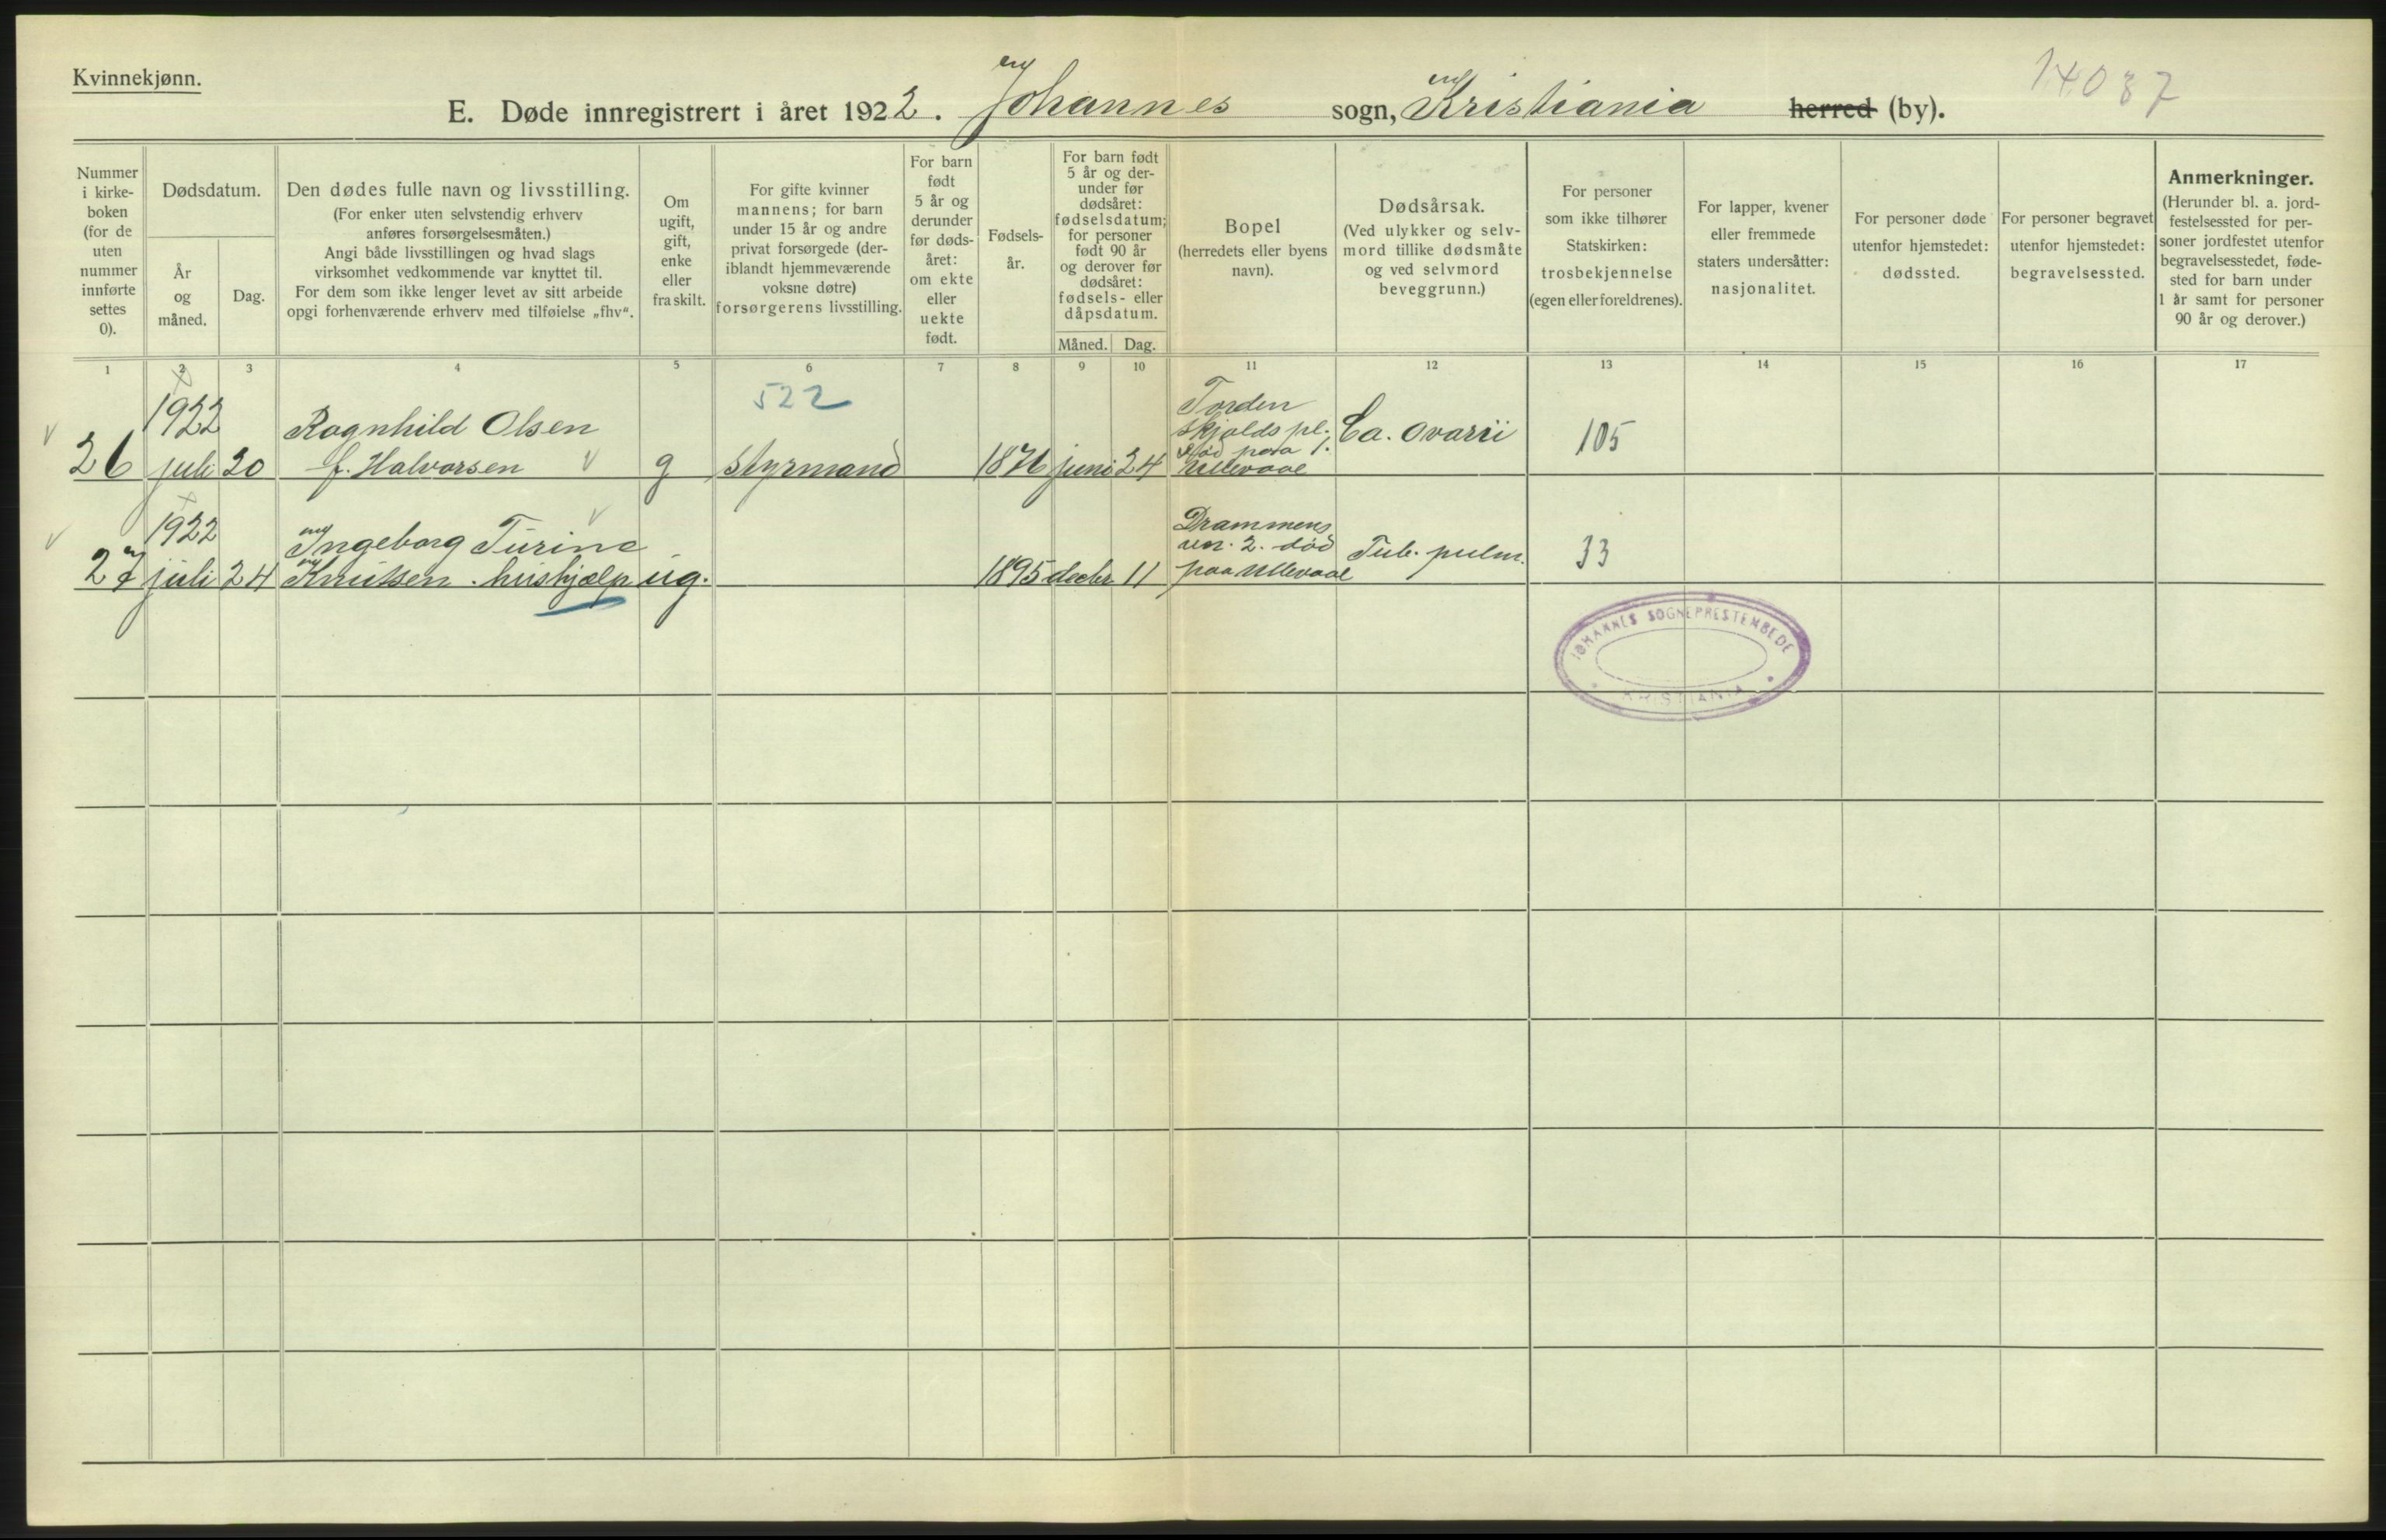 Kvinnekjønn.
14087
E. Døde innregistrert i året 1922. Johannes sogn, Kristiania herred (by).
Nummer
i kirke-
boken
(for de
uten
nummer
innførte
settes
0).
Dødsdatum.
År
og
måned.
Dag.
Den dødes fulle navn og livsstilling.
(For enker uten selvstendig erhverv
anføres forsørgelsesmåten.)
Angi både livsstillingen og hvad slags
virksomhet vedkommende var knyttet til.
For dem som ikke lenger levet av sitt arbeide
opgi forhenværende erhverv med tilføielse „fhv“.
Om
ugift,
gift,
enke
eller
fraskilt.
For gifte kvinner
mannens; for barn
under 15 år og andre
privat forsørgede (der-
iblandt hjemmeværende
voksne døtre)
forsørgerens livsstilling.
For barn
født
5 år og
derunder
før døds-
året:
om ekte
eller
uekte
født.
Fødsels-
år.
For barn født
5 år og der-
under før
dødsåret:
fødselsdatum;
for personer
født 90 år
og derover før
dødsåret:
fødsels- eller
dåpsdatum.
Måned.
Dag.
Bopel
(herredets eller byens
navn).
Dødsårsak.
(Ved ulykker og selv-
mord tillike dødsmåte
og ved selvmord
beveggrunn.)
For personer
som ikke tilhører
Statskirken:
trosbekjennelse
(egen eller foreldrenes).
For lapper, kvener
eller fremmede
staters undersåtter:
nasjonalitet.
For personer døde
utenfor hjemstedet:
dødssted.
For personer begravet
utenfor hjemstedet:
begravelsessted.
Anmerkninger.
(Herunder bl. a. jord-
festelsessted for per-
soner jordfestet utenfor
begravelsesstedet, føde-
sted for barn under
1 år samt for personer
90 år og derover.)
1 2 3 4 5 6 7 8 9 10 11 12 13 14 15 16 17
26
1922
juli
20
Ragnhild Olsen
f. Halvorsen
g
522
styrmand
1876
juni
24
Torden
skjolds pl.
død paa 1.
Ullevaal
Ca. ovarii
105
27
1922
juli
24
Ingeborg Turine
Knutsen. hushjælp
ug.
1895
decbr
11
Drammens
vn. 2. død
paa Ullevaal
Tub. pulm.
33
JOHANNES SOGNEPRESTEMBEDE
KRISTIANIA